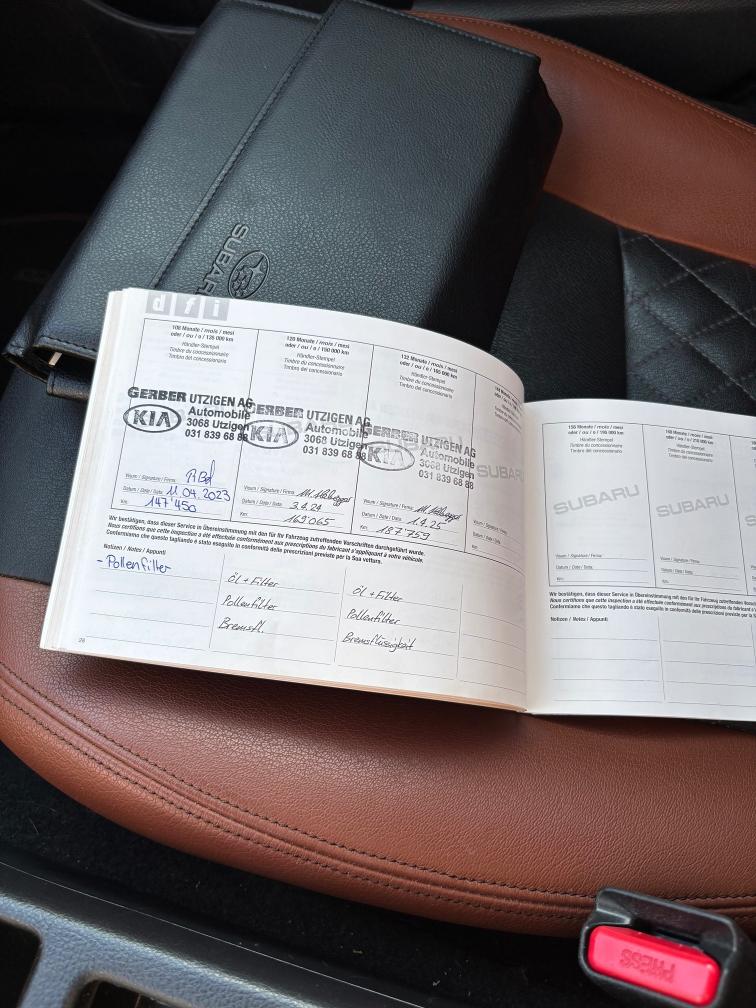 SUBARU
d f i
108 Monate / mois / mesi
oder / ou / o / 135 000 km
Händler-Stempel
Timbre du concessionnaire
Timbro del concessionario
GERBER UTZIGEN AG
KIA Automobile
3068 Utzigen
031 839 68 88
Visum / Signature / Firma:
Datum / Date / Data: 11.04.2023
Km: 147'450
120 Monate / mois / mesi
oder / ou / o / 150 000 km
Händler-Stempel
Timbre du concessionnaire
Timbro del concessionario
GERBER UTZIGEN AG
KIA Automobile
3068 Utzigen
031 839 68 88
Visum / Signature / Firma:
Datum / Date / Data: 3.4.24
Km: 169'065
132 Monate / mois / mesi
oder / ou / o / 165 000 km
Händler-Stempel
Timbre du concessionnaire
Timbro del concessionario
GERBER UTZIGEN AG
KIA Automobile
3068 Utzigen
031 839 68 88
Visum / Signature / Firma:
Datum / Date / Data: 1.4.25
Km: 187'759
SUBARU
Wir bestätigen, dass dieser Service in Übereinstimmung mit den für Ihr Fahrzeug zutreffenden Vorschriften durchgeführt wurde.
Nous certifions que cette inspection a été effectuée conformément aux prescriptions du fabricant s'appliquant à votre véhicule.
Confermiamo che questo tagliando è stato eseguito in conformità delle prescrizioni previste per la Sua vettura.
Notizen / Notes / Appunti
- Pollenfilter
Öl + Filter
Pollenfilter
Bremsfl.
Öl + Filter
Pollenfilter
Bremsflüssigkeit
156 Monate / mois / mesi
oder / ou / o / 195 000 km
Händler-Stempel
Timbre du concessionnaire
Timbro del concessionario
SUBARU
Visum / Signature / Firma:
Datum / Date / Data:
Km:
Händler-Stempel
Timbre du concessionnaire
Timbro del concessionario
SUBARU
Visum / Signature / Firma:
Datum / Date / Data:
Km:
Wir bestätigen, dass dieser Service in Übereinstimmung mit den für Ihr Fahrzeug zutreffenden
Nous certifions que cette inspection a été effectuée conformément aux prescriptions du fabricant
Confermiamo che questo tagliando è stato eseguito in conformità delle prescrizioni previste per la
Notizen / Notes / Appunti
PRESS